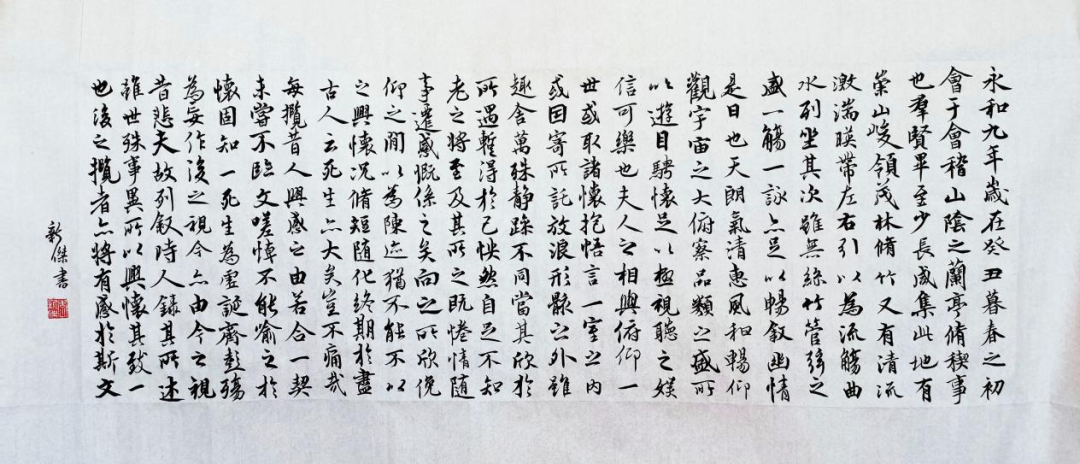 永和九年歲在癸丑暮春之初
會于會稽山陰之蘭亭脩稧事
也羣賢畢至少長咸集此地有
崇山峻領茂林脩竹又有清流
激湍暎帶左右引以為流觴曲
水列坐其次雖無絲竹管弦之
盛一觴一詠亦足以暢叙幽情
是日也天朗氣清惠風和暢仰
觀宇宙之大俯察品類之盛所
以遊目騁懷足以極視聽之娛
信可樂也夫人之相與俯仰一
世或取諸懷抱悟言一室之內
或因寄所託放浪形骸之外雖
趣舍萬殊静躁不同當其欣於
所遇暫得於己怏然自足不知
老之將至及其所之既惓情隨
事遷感慨係之矣向之所欣俛
仰之間以為陳迹猶不能不以
之興懷況脩短隨化終期於盡
古人云死生亦大矣豈不痛哉
每攬昔人興感之由若合一契
未嘗不臨文嗟悼不能喻之於
懷固知一死生為虛誕齊彭殤
為妄作後之視今亦由今之視
昔悲夫故列叙時人錄其所述
雖世殊事異所以興懷其致一
也後之攬者亦將有感於斯文
新傑書